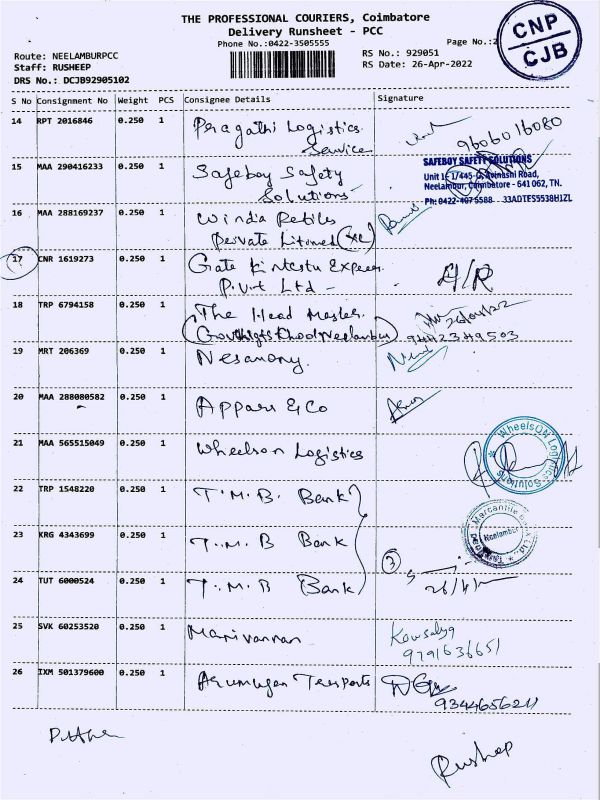 THE PROFESSIONAL COURIERS, Coimbatore
Delivery Runsheet - PCC
Phone No.:0422-3505555
Page No.:2
CNP
CJB
Route: NEELAMBURPCC
Staff: RUSHEEP
DRS No.: DCJB92905102
RS No.: 929051
RS Date: 26-Apr-2022
S No Consignment No Weight PCS Consignee Details Signature
14 RPT 2016846 0.250 1 Pragathi Logistics 9606016080
Service
15 MAA 290416233 0.250 1 Safeboy Safety
Solutions
SAFEBOY SAFETY SOLUTIONS
Avinashi Road,
Neelambur, Coimbatore - 641 062, TN.
16 MAA 288169237 0.250 1
Private Limited
17 CNR 1619273 0.250 1 Gate
Pvt Ltd - A/R
18 TRP 6794158 0.250 1 The Head Master
9442349503
19 MRT 206369 0.250 1 Nesamony
20 MAA 288080582 0.250 1 & Co
21 MAA 565515049 0.250 1 Wheelson Logistics
WheelsON Logistics Solutions
22 TRP 1548220 0.250 1 T.M.B. Bank
23 KRG 4343699 0.250 1 T.M.B Bank
Mercantile Bank Ltd.
Neelambur
24 TUT 6000524 0.250 1 T.M.B Bank
3
25 SVK 60253520 0.250 1 Manivannan Kowsalya
9791636651
26 IXM 501379600 0.250 1 Arumugan Trensports
9344656211
Rushep